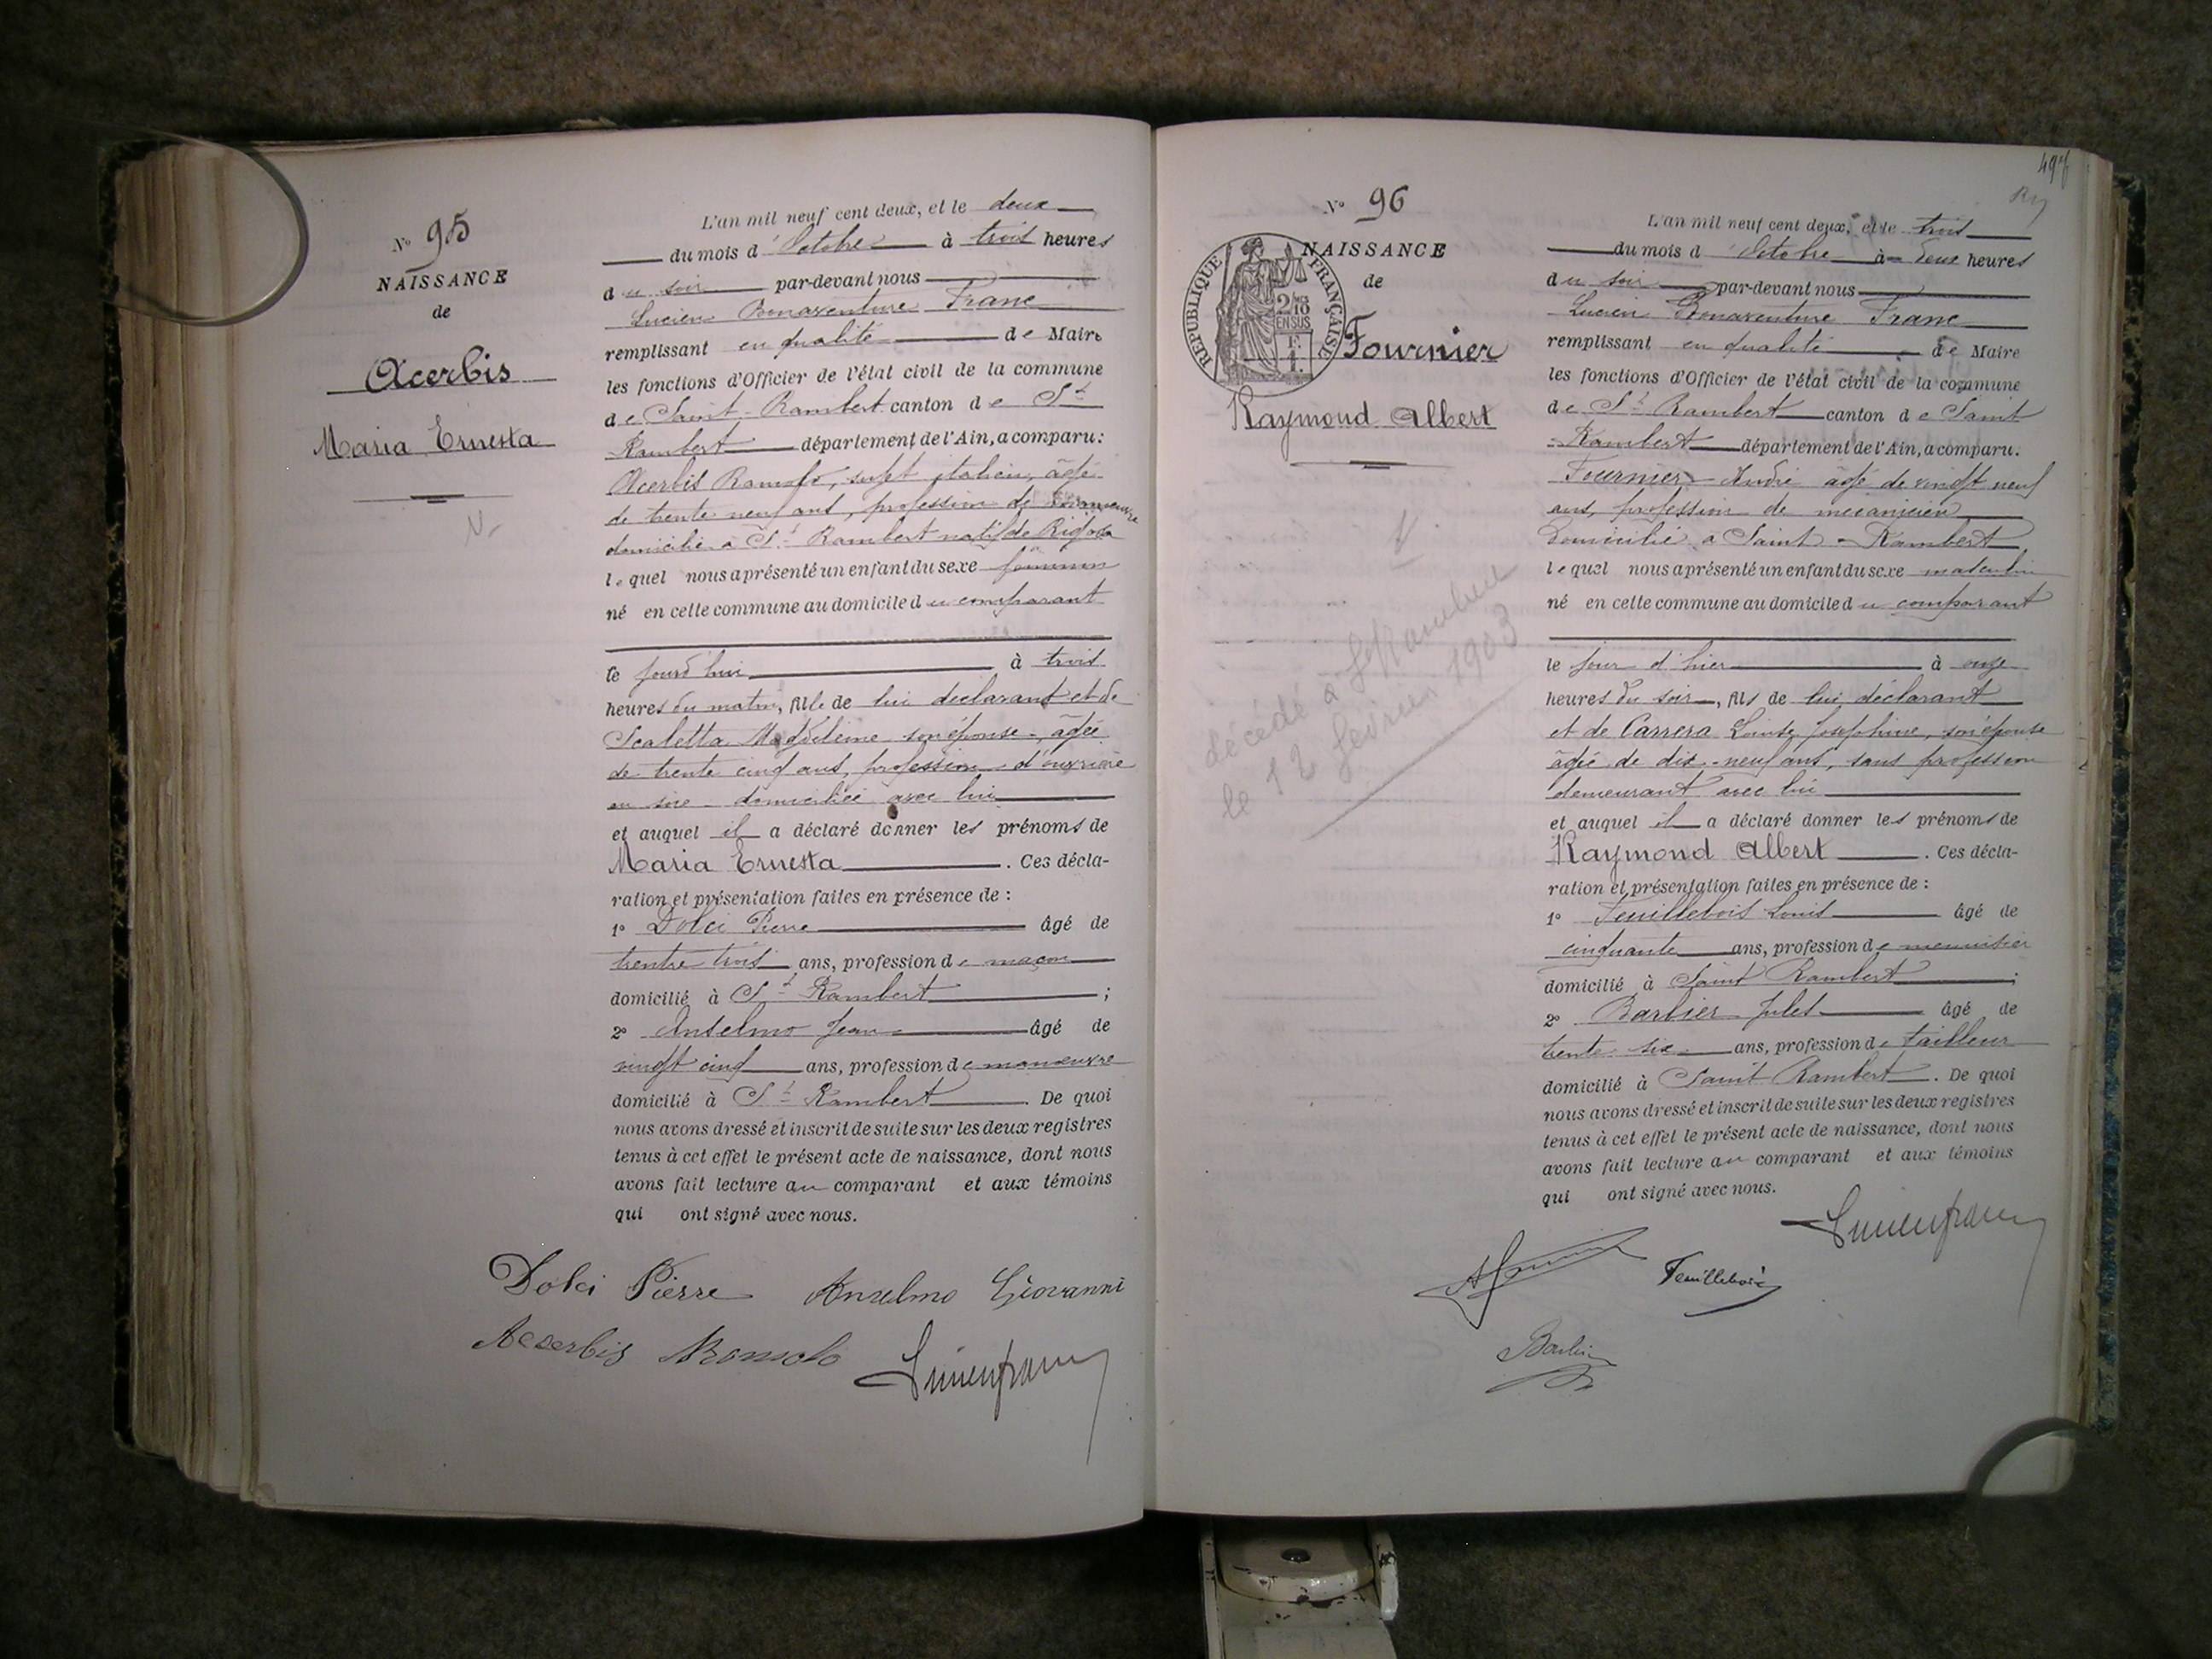 N° 95
NAISSANCE
de
Acerbis
Maria Ernesta
N.
L'an mil neuf cent deux, et le deux
du mois d'Octobre à trois heures
du soir par-devant nous
Lucien Bonaventure Franc
remplissant en qualité de Maire
les fonctions d'Officier de l'état civil de la commune
de Saint-Rambert canton de St
Rambert département de l'Ain, a comparu :
Acerbis Romolo, sujet italien, âgé
de trente neuf ans, profession de
domicilié à St Rambert natif de
lequel nous a présenté un enfant du sexe féminin
né en cette commune au domicile du comparant
le jourd'hui à trois
heures du matin, fille de lui déclarant et de
Scaletta Madeleine son épouse, âgée
de trente cinq ans, profession d'ouvrière
en soie domiciliée avec lui
et auquel il a déclaré donner les prénoms de
Maria Ernesta. Ces décla-
ration et présentation faites en présence de :
1° Dolci Pierre âgé de
trentre trois ans, profession de maçon
domicilié à St Rambert ;
2° Anselmo Jean âgé de
vingt cinq ans, profession de manoeuvre
domicilié à St Rambert De quoi
nous avons dressé et inscrit de suite sur les deux registres
tenus à cet effet le présent acte de naissance, dont nous
avons fait lecture au comparant et aux témoins
qui ont signé avec nous.
Dolci Pierre Anselmo Giovanni
Acerbis Romolo Lucien franc
497
N° 96
NAISSANCE
de
RÉPUBLIQUE FRANÇAISE
2/10 EN SUS
F. 1.
Fournier
Raymond Albert
décédé à St Rambert
le 12 février 1903
L'an mil neuf cent deux, et le trois
du mois d'Octobre à deux heures
du soir par-devant nous
Lucien Bonaventure Franc
remplissant en qualité de Maire
les fonctions d'Officier de l'état civil de la commune
de St Rambert canton de Saint
-Rambert département de l'Ain, a comparu :
Fournier André âgé de vingt neuf
ans, profession de mécanicien
domicilié à Saint-Rambert
lequel nous a présenté un enfant du sexe masculin
né en cette commune au domicile du comparant
le jour d'hier à onze
heures du soir, fils de lui déclarant
et de Carrera Josephine, son épouse
âgée de dix-neuf ans, sans profession
demeurant avec lui
et auquel il a déclaré donner les prénoms de
Raymond Albert. Ces décla-
ration et présentation faites en présence de :
1° Feuillebois Louis âgé de
cinquante ans, profession de menuisier
domicilié à Saint Rambert ;
2° Barbier Jules âgé de
trente-six ans, profession de tailleur
domicilié à Saint Rambert. De quoi
nous avons dressé et inscrit de suite sur les deux registres
tenus à cet effet le présent acte de naissance, dont nous
avons fait lecture au comparant et aux témoins
qui ont signé avec nous.
Lucien franc
Feuillebois
Barbier